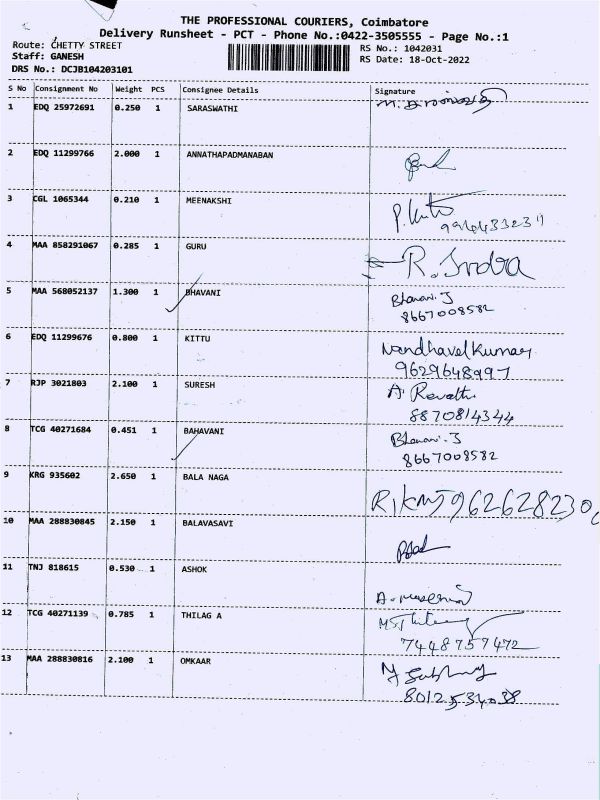 THE PROFESSIONAL COURIERS, Coimbatore
Delivery Runsheet - PCT - Phone No.:0422-3505555 - Page No.:1
Route: CHETTY STREET
RS No.: 1042031
Staff: GANESH
RS Date: 18-Oct-2022
DRS No.: DCJB104203101
S No Consignment No Weight PCS Consignee Details Signature
1 EDQ 25972691 0.250 1 SARASWATHI
2 EDQ 11299766 2.000 1 ANNATHAPADMANABAN
3 CGL 1065344 0.210 1 MEENAKSHI
4 MAA 858291067 0.285 1 GURU R. Indra
5 MAA 568052137 1.300 1 BHAVANI Bhavani. J
8667008582
6 EDQ 11299676 0.800 1 KITTU Nandhavel Kumar
9629648997
7 RJP 3021803 2.100 1 SURESH A. Revathi
8870814344
8 TCG 40271684 0.451 1 BAHAVANI Bhavani. J
8667008582
9 KRG 935602 2.650 1 BALA NAGA 962628230
10 MAA 288830845 2.150 1 BALAVASAVI
11 TNJ 818615 0.530 1 ASHOK
12 TCG 40271139 0.785 1 THILAG A
7448757472
13 MAA 288830816 2.100 1 OMKAAR
8012534038